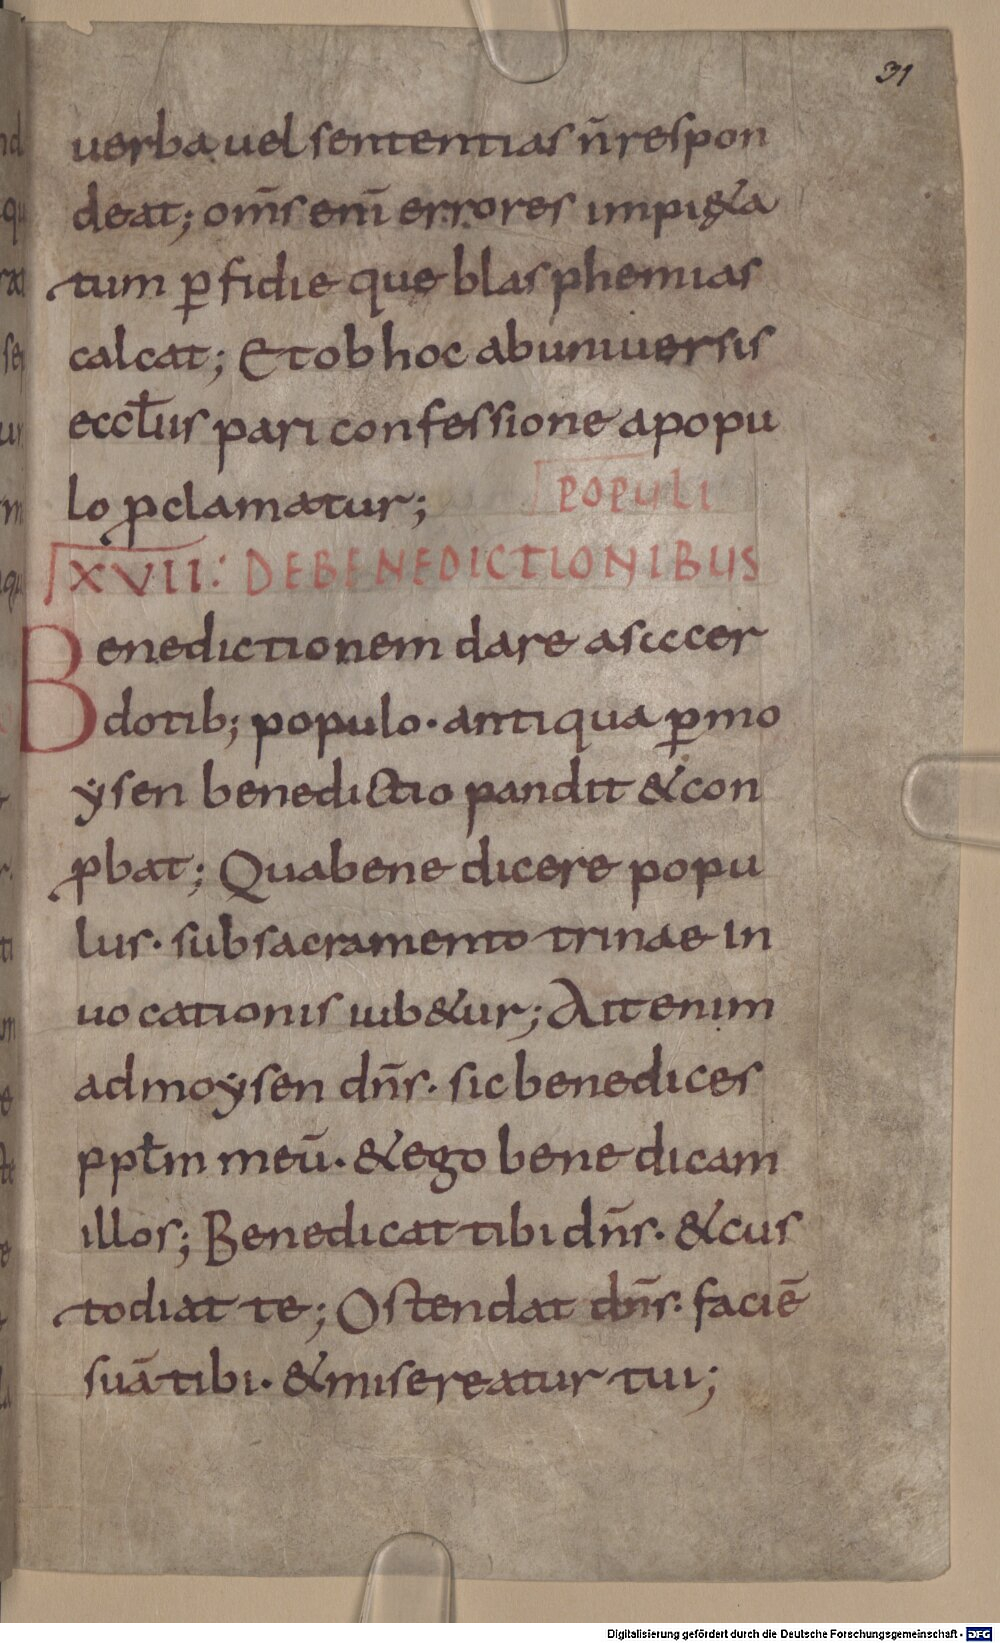 31
uerba uel sententias n̄ respon
deat; om̄s enī errores impi&a
tum ꝑfidie que blasphemias
calcat; Et ob hoc ab uniuersis
eccƚus pari confessione a popu
lo ꝓclamatur;
POPULI
XVII: DE BENEDICTIONIBUS
Benedictionem dare a sacer
dotib; populo· antiqua ꝑ mo
ẏsen benedictio pandit & con
ꝓbat; Qua benedicere popu
lus· sub sacramento trinae in
uocationis iub&ur; Ait enim
ad moẏsen dn̄s· sic benedices
ppƚm meū· & ego benedicam
illos; Benedicat tibi dn̄s· & cus
todiat te; Ostendat dn̄s· faciē
suā tibi· & misereatur tui;
Digitalisierung gefördert durch die Deutsche Forschungsgemeinschaft - DFG